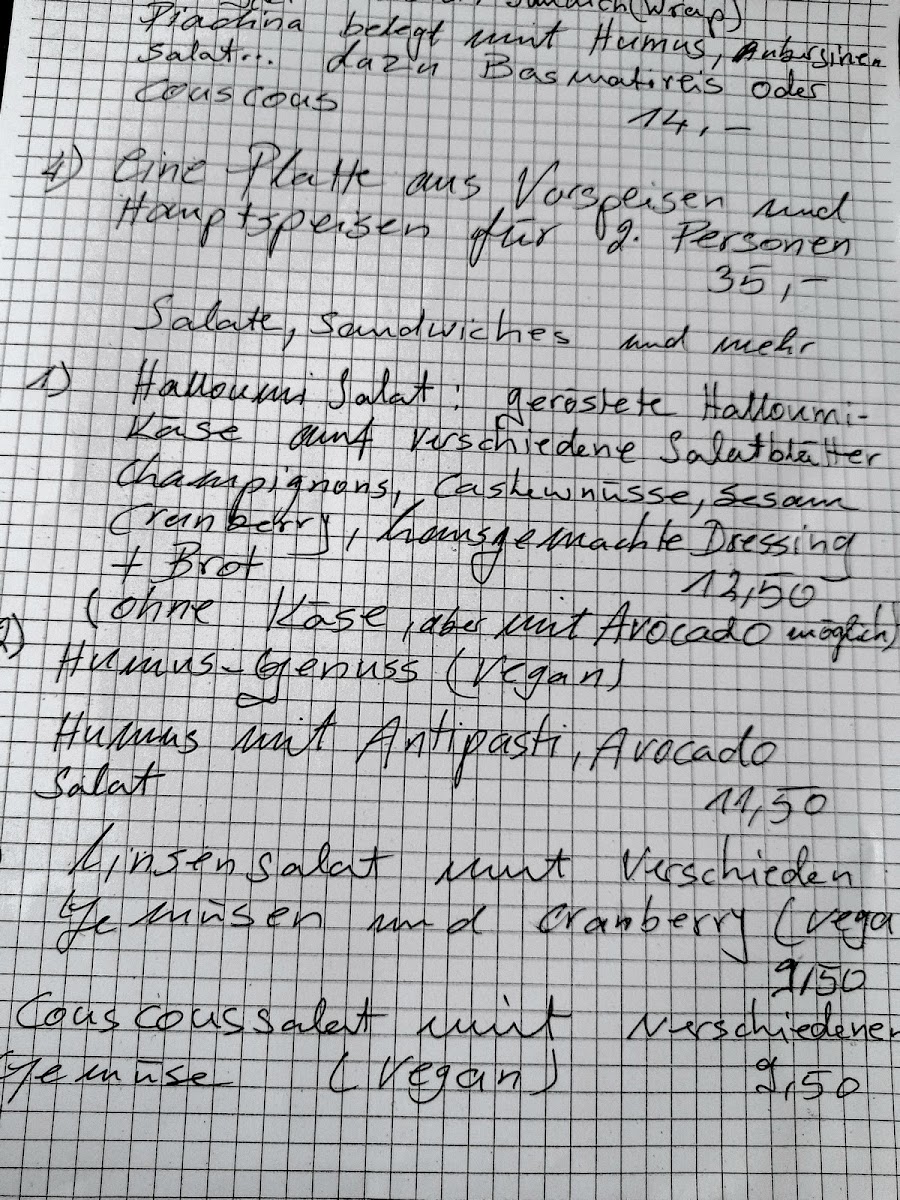 Sandwich (Wrap)
Piadina belegt mit Humus, Auberginen
Salat... dazu Basmatireis oder
Couscous
14,-
4) eine Platte aus Vorspeisen und
Hauptspeisen für 2. Personen
35,-
Salate, Sandwiches und mehr
1) Halloumi Salat: geröstete Halloumi-
Käse auf verschiedene Salatblätter
Champignons, Cashewnüsse, Sesam
Cranberry, hausgemachte Dressing
+ Brot
12,50
(ohne Käse, aber mit Avocado möglich)
2) Humus-Genuss (Vegan)
Humus mit Antipasti, Avocado
Salat
11,50
Linsensalat mit Verschieden
Gemüsen und Cranberry (Vega
9,50
Couscoussalat mit Verschiedener
Gemüse (Vegan)
9,50